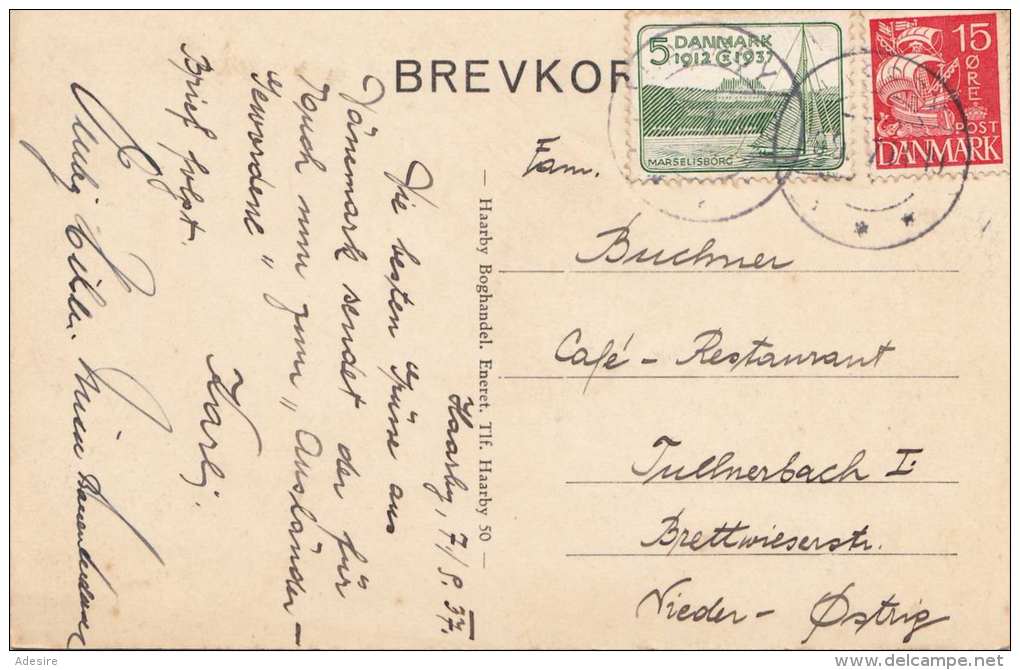 BREVKOR
5 DANMARK
1912 1937
MARSELISBORG
15
ØRE
POST
DANMARK
Fam.
Buchner
Café - Restaurant
Tullnerbach I.
Brettwieserstr.
Nieder - Østrig
— Haarby Boghandel. Eneret. Tlf. Haarby 50 —
Haarby, 7/8. 37.
Die besten Grüsse aus
Dänmark sendet der für
Touch nun zum „Ausländer —
gewordene"
Karl.
Brief folgt.
Cilli
Adesire
delcampe.net